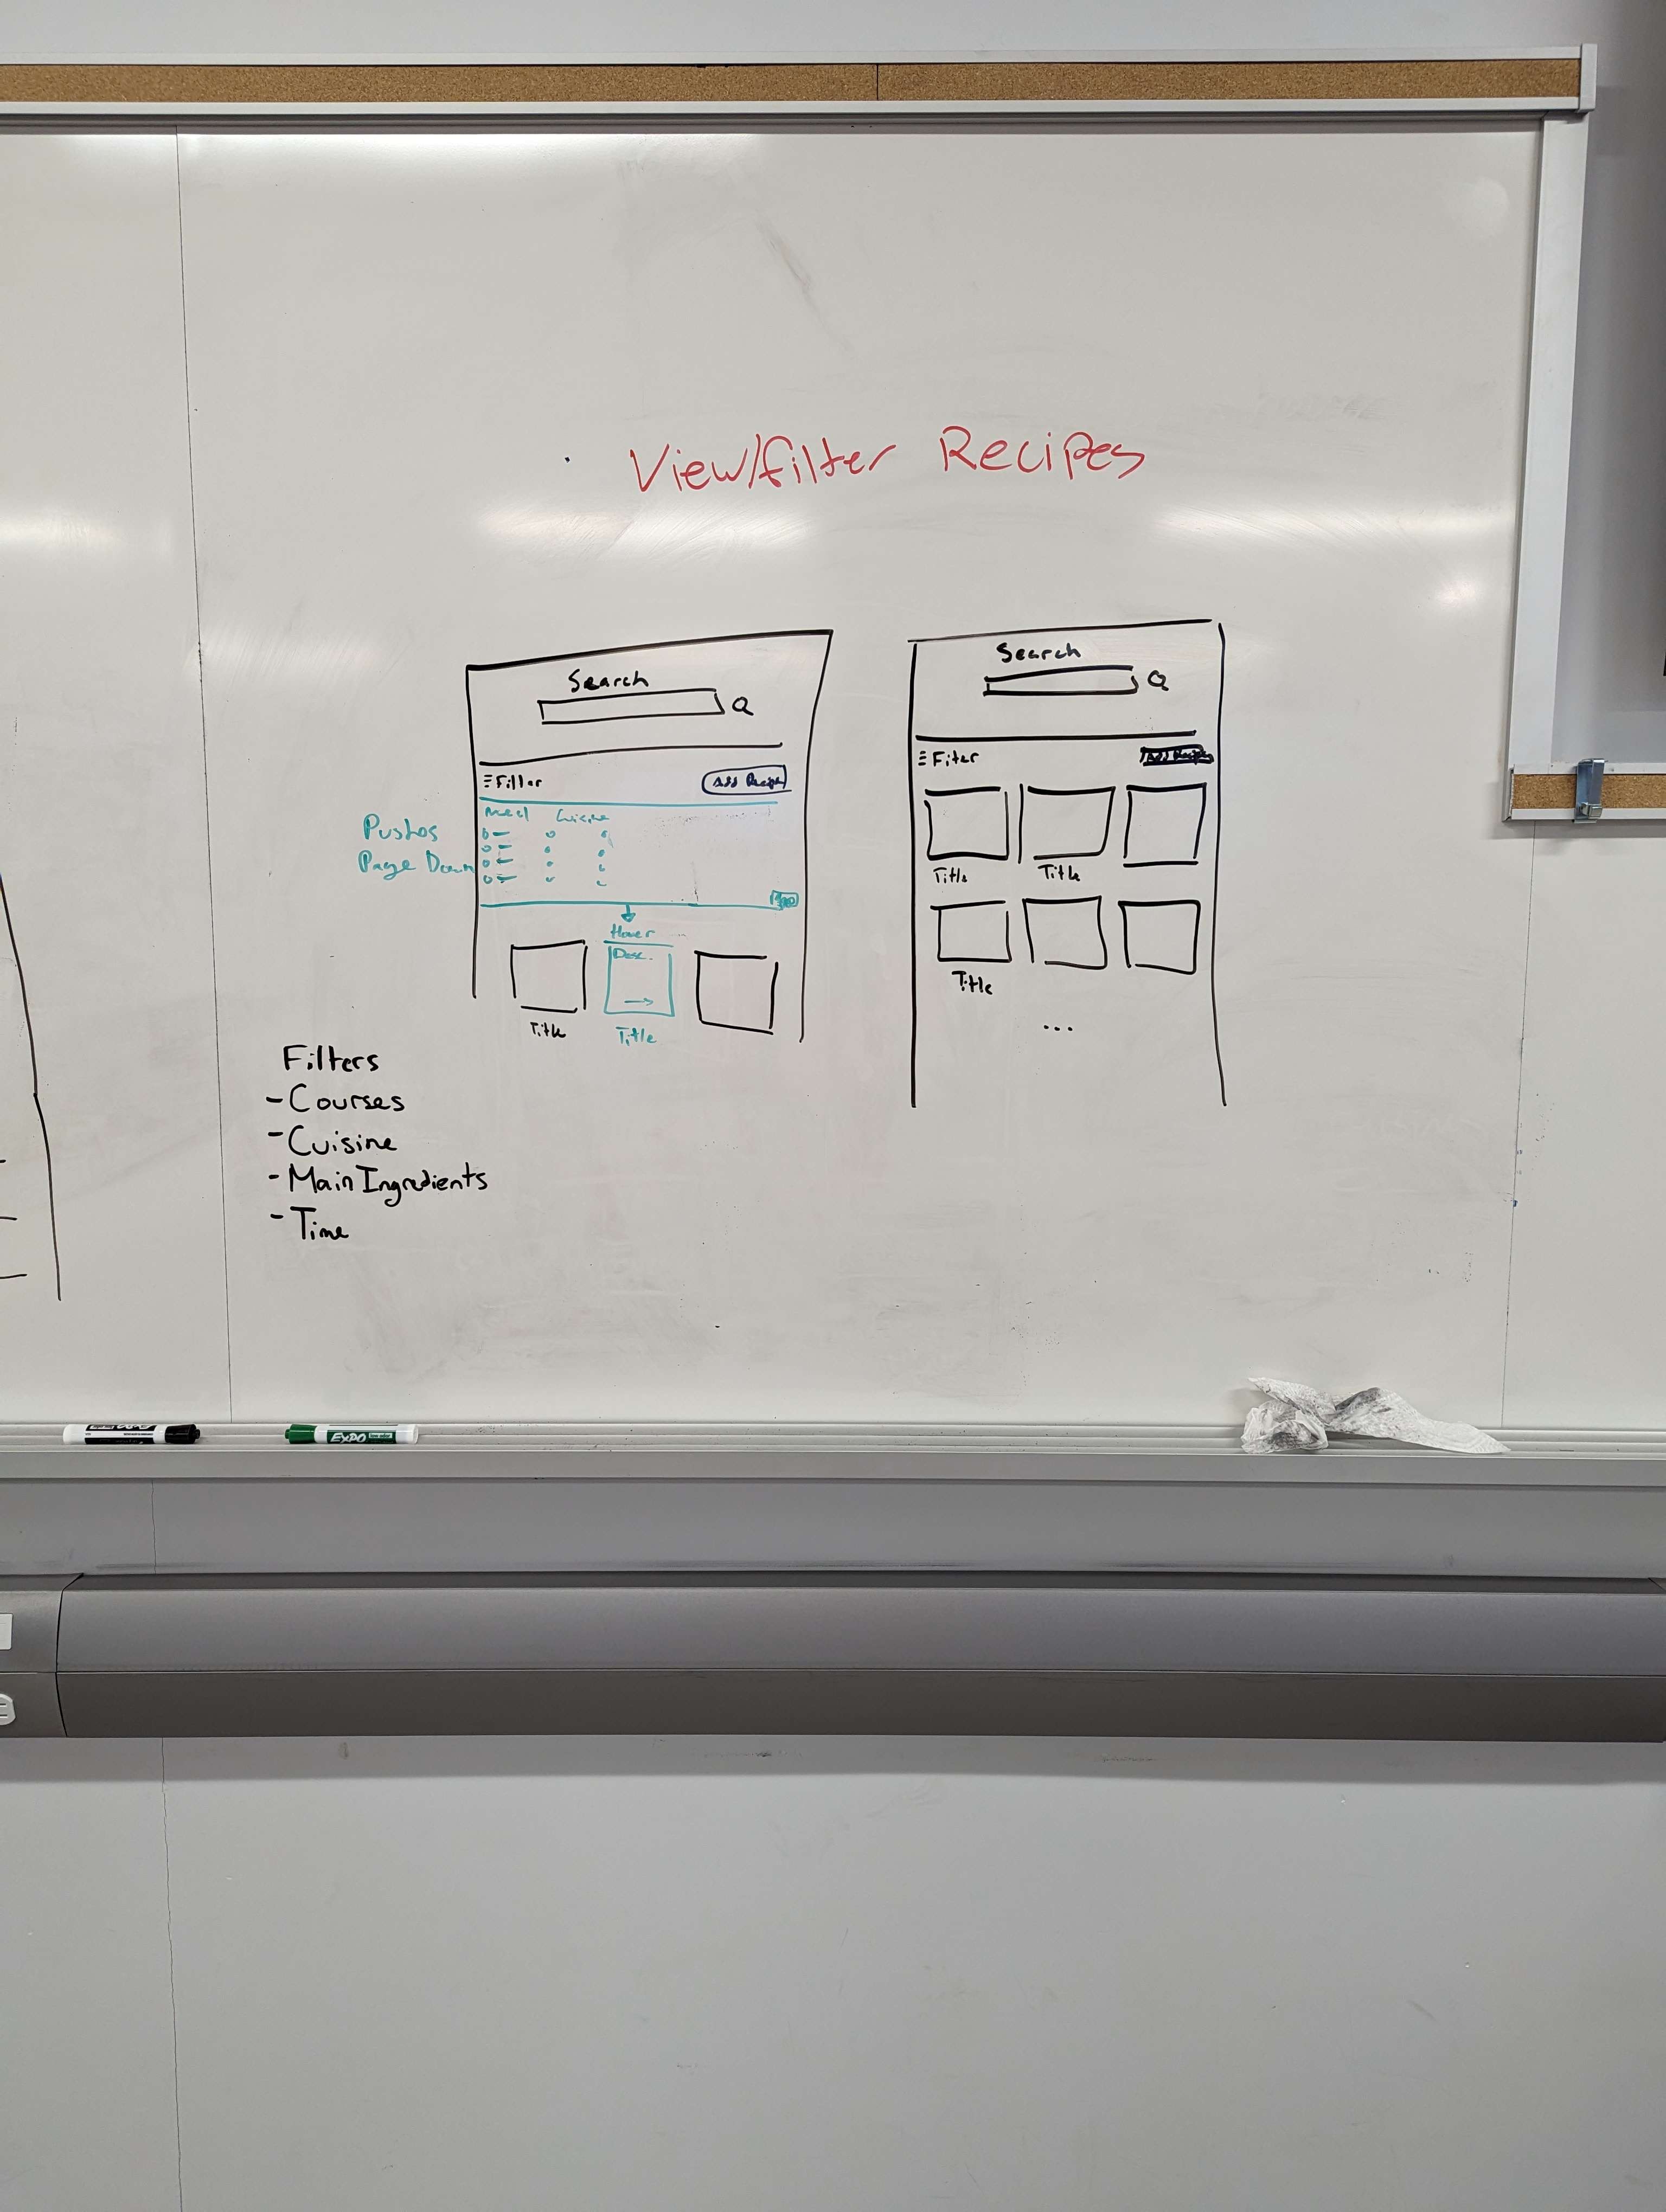 View/filter Recipes
Search
Filter
Add Recipe
Meal Cuisine
Pushes
Page Down
Hover
Desc.
Title
Title
Search
Fiter
Add Recipe
Title
Title
Title
...
Filters
- Courses
- Cuisine
- Main Ingredients
- Time
EXPO